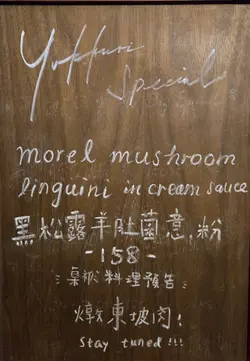 Yukkuri
Special
morel mushroom
linguini in cream sauce
黑松露羊肚菌意粉
-158-
料理預告
燉東坡肉!
Stay tuned!!!